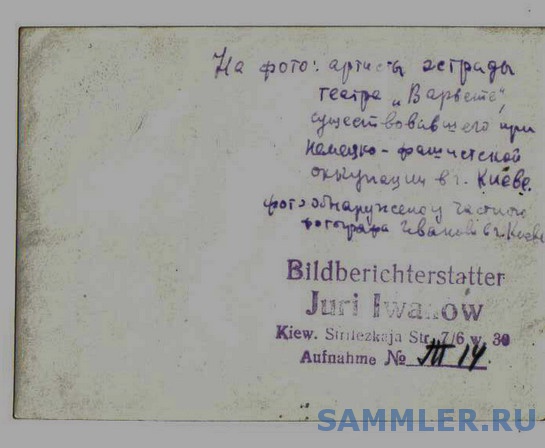 На фото: артисты эстрады
театра „Варьете",
существовавшего при
немецко-фашистской
оккупации в г. Киеве.
фото обнаружено у частного
фотографа Иванов в г. Киеве
Bildberichterstatter
Juri Iwanow
Kiew. Strilezkaja Str. 7/6 w. 30
Aufnahme № Ж 14
SAMMLER.RU